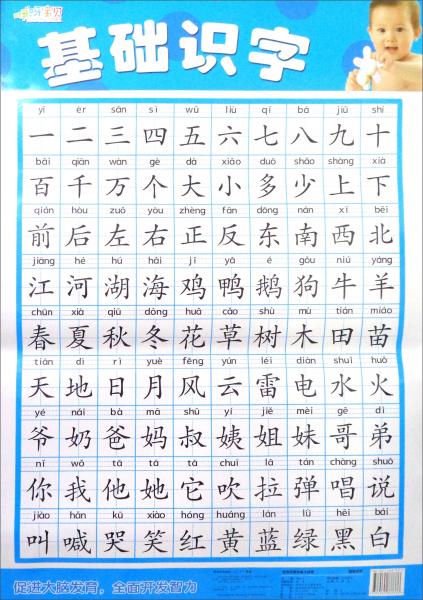 基础识字
yī èr sān sì wǔ liù qī bā jiǔ shí
一 二 三 四 五 六 七 八 九 十
bǎi qiān wàn gè dà xiǎo duō shǎo shàng xià
百 千 万 个 大 小 多 少 上 下
qián hòu zuǒ yòu zhèng fǎn dōng nán xī běi
前 后 左 右 正 反 东 南 西 北
jiāng hé hú hǎi jī yā é gǒu niú yáng
江 河 湖 海 鸡 鸭 鹅 狗 牛 羊
chūn xià qiū dōng huā cǎo shù mù tián miáo
春 夏 秋 冬 花 草 树 木 田 苗
tiān dì rì yuè fēng yún léi diàn shuǐ huǒ
天 地 日 月 风 云 雷 电 水 火
yé nǎi bà mā shū yí jiě mèi gē dì
爷 奶 爸 妈 叔 姨 姐 妹 哥 弟
nǐ wǒ tā tā tā chuī lā tán chàng shuō
你 我 他 她 它 吹 拉 弹 唱 说
jiào hǎn kū xiào hóng huáng lán lǜ hēi bái
叫 喊 哭 笑 红 黄 蓝 绿 黑 白
促进大脑发育，全面开发智力